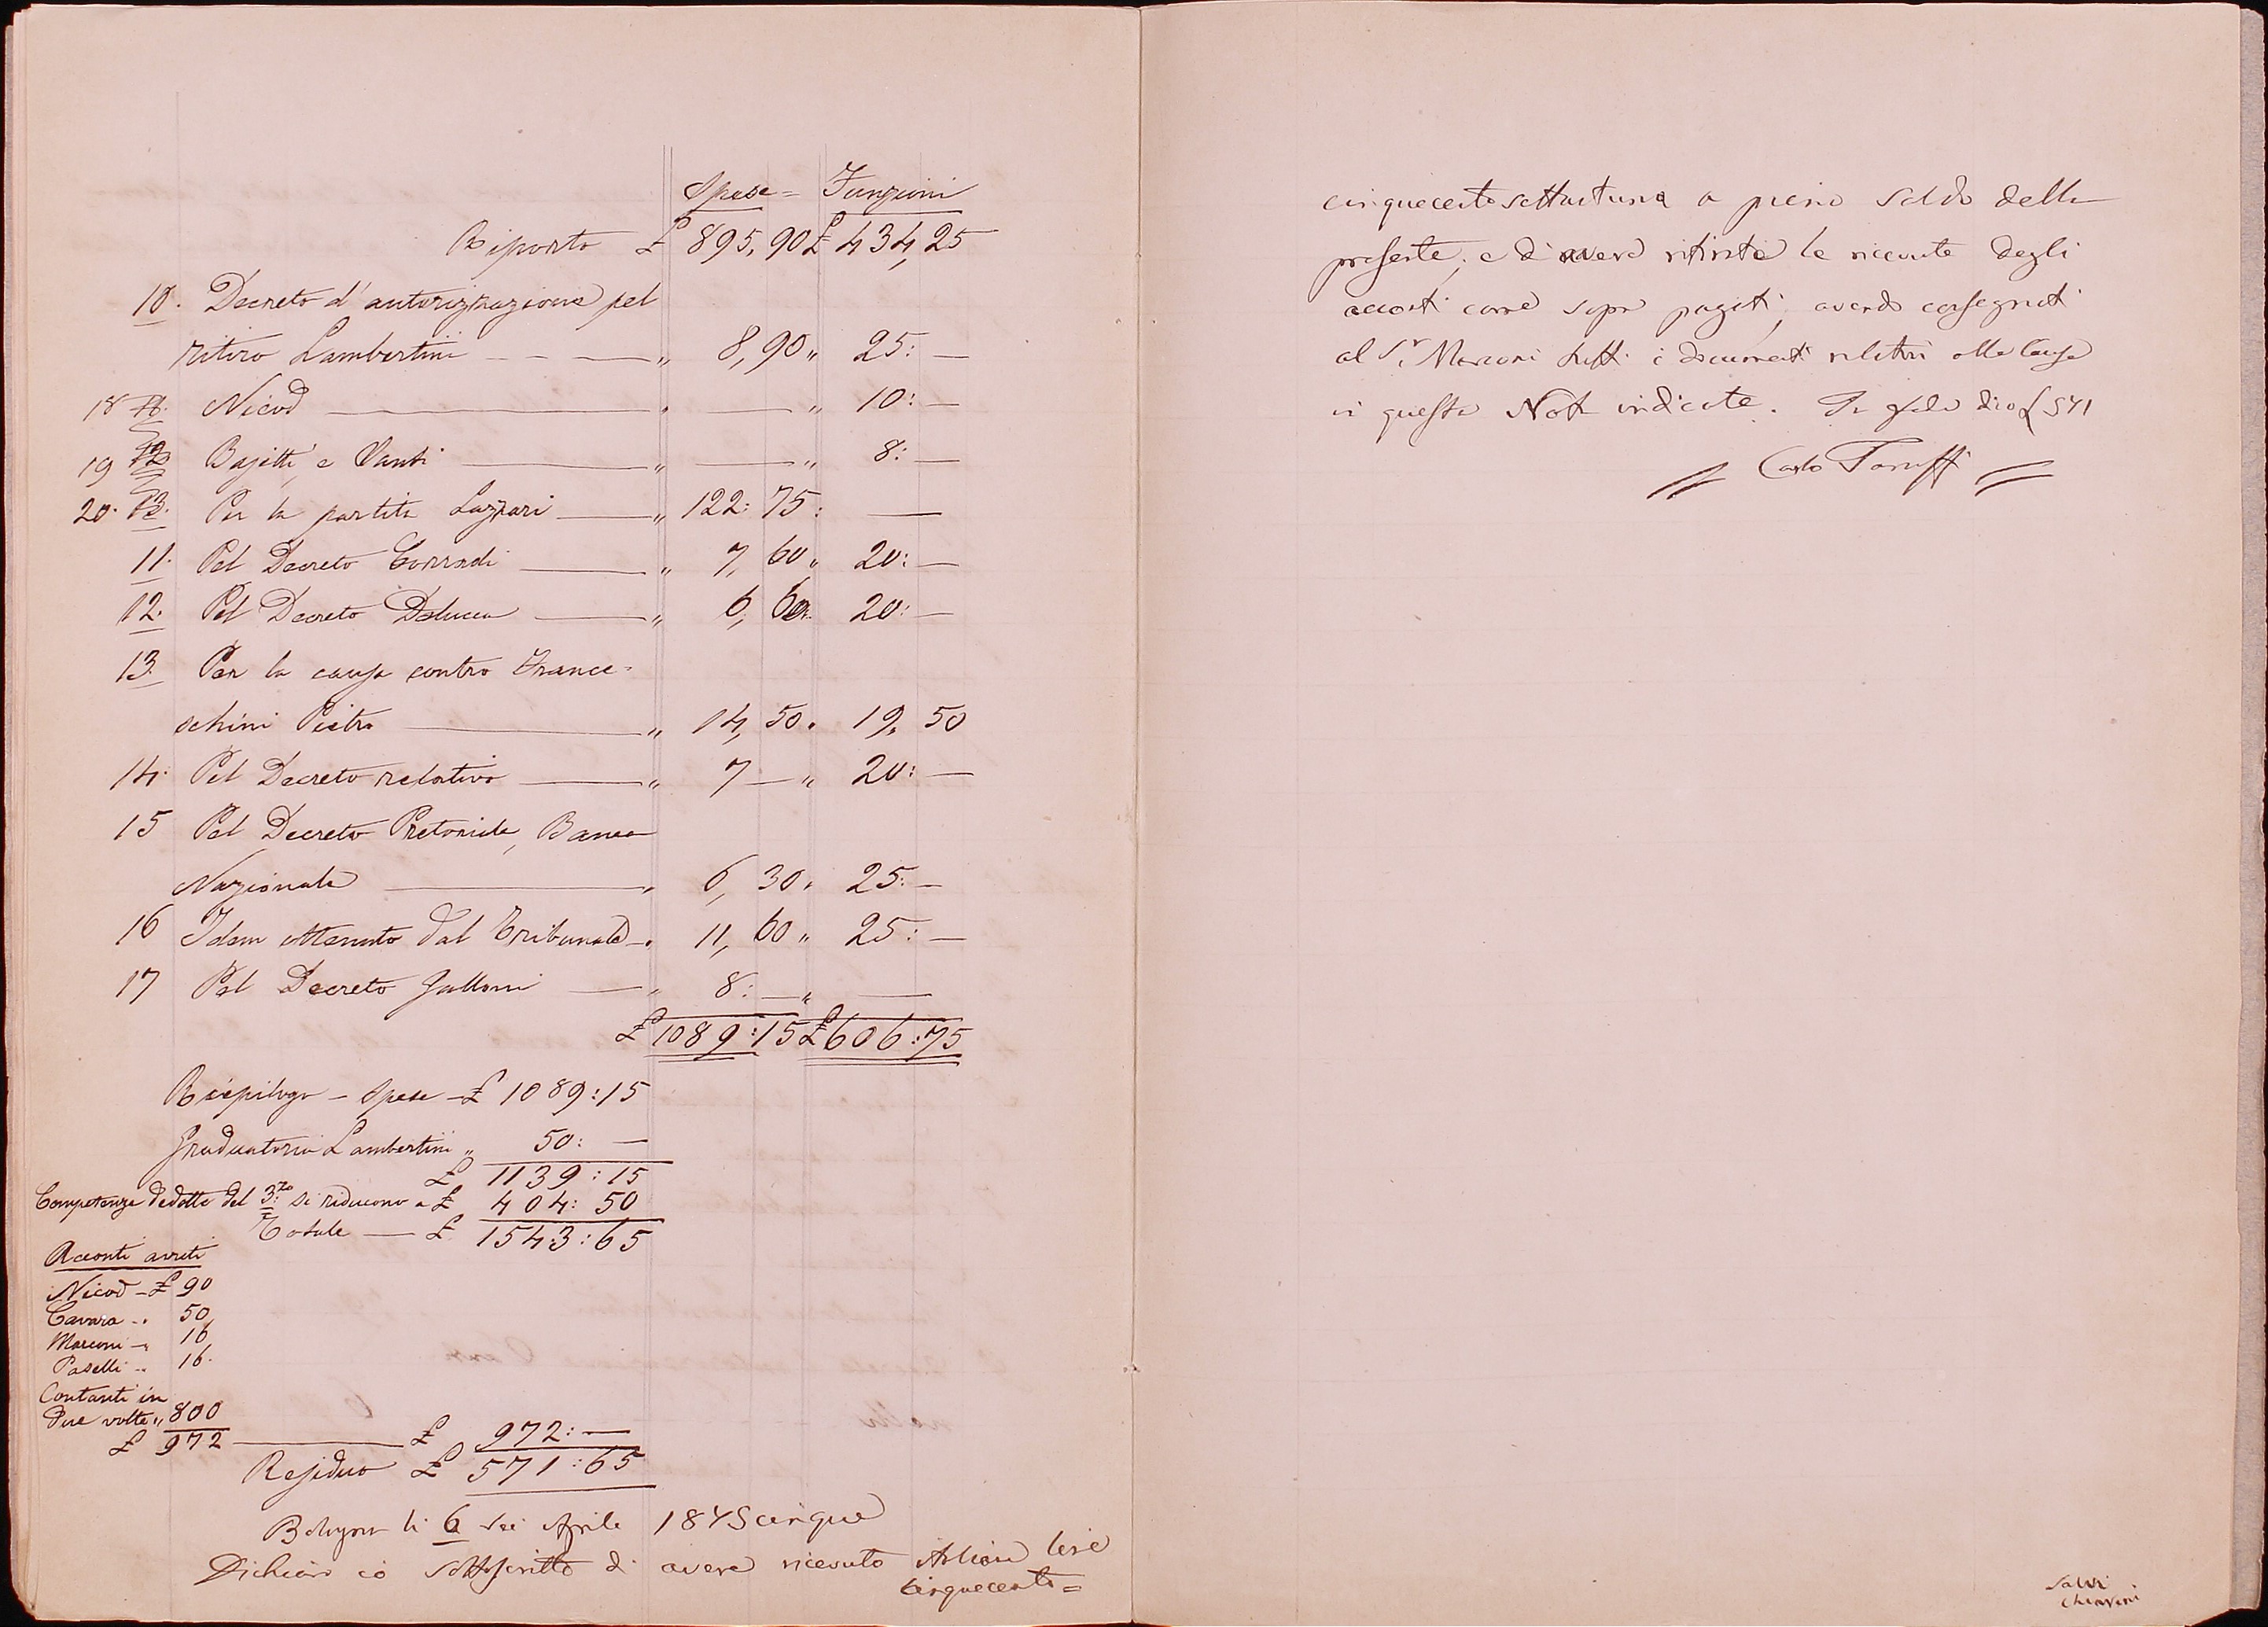 Spese = Funzioni
Riporto £ 895,90 £ 434,25
10. Decreto d'autorizzazione pel
ritiro Lambertini — „ 8,90 „ 25: —
18 11. Nicod — „ — „ 10: —
19 12 Bajetti e Vanti — „ — „ 8: —
20. 13. Per la partita Lazzari — „ 122: 75: —
11. Pel Decreto Corradi — „ 7, 60 „ 20: —
12. Pel Decreto Delucca — „ 6, 60 „ 20: —
13. Per la causa contro France=
schini Pietro — „ 14, 50 „ 19, 50
14. Pel Decreto relativo — „ 7 — „ 20: —
15 Pel Decreto Pretoriale, Banca
Nazionale — „ 6, 30 „ 25: —
16 Idem ottenuto dal Tribunale — „ 11, 60 „ 25: —
17 Pel Decreto Galloni — „ 8: — „ —
£ 1089:15 £ 606:75
Riepilogo – Spese – £ 1089:15
Graduatoria Lambertini „ 50: —
£ 1139:15
Competenze dedotte del 3.zo si riducono a £ 404: 50
Totale — £ 1543:65
Acconti avuti
Nicod – £ 90
Cavara „ 50
Marconi – „ 16
Paselli „ 16.
Contanti in
due volte „ 800
£ 972 — £ 972: —
Residuo £ 571:65
Bologna li 6 sei Aprile 1875cinque
Dichiaro io sottoscritto di avere ricevuto Italiane lire
cinquecento=
cinquecentosettantuna a pieno saldo della
presente, e di avere ritirate le ricevute degli
acconti come sopra pagati, avendo consegnati
al Sr. Marconi tutti i documenti relativi alle Cause
in questa Nota indicate. In fede dico £ 571
Carlo Taruffi
Salvi
Chiarini